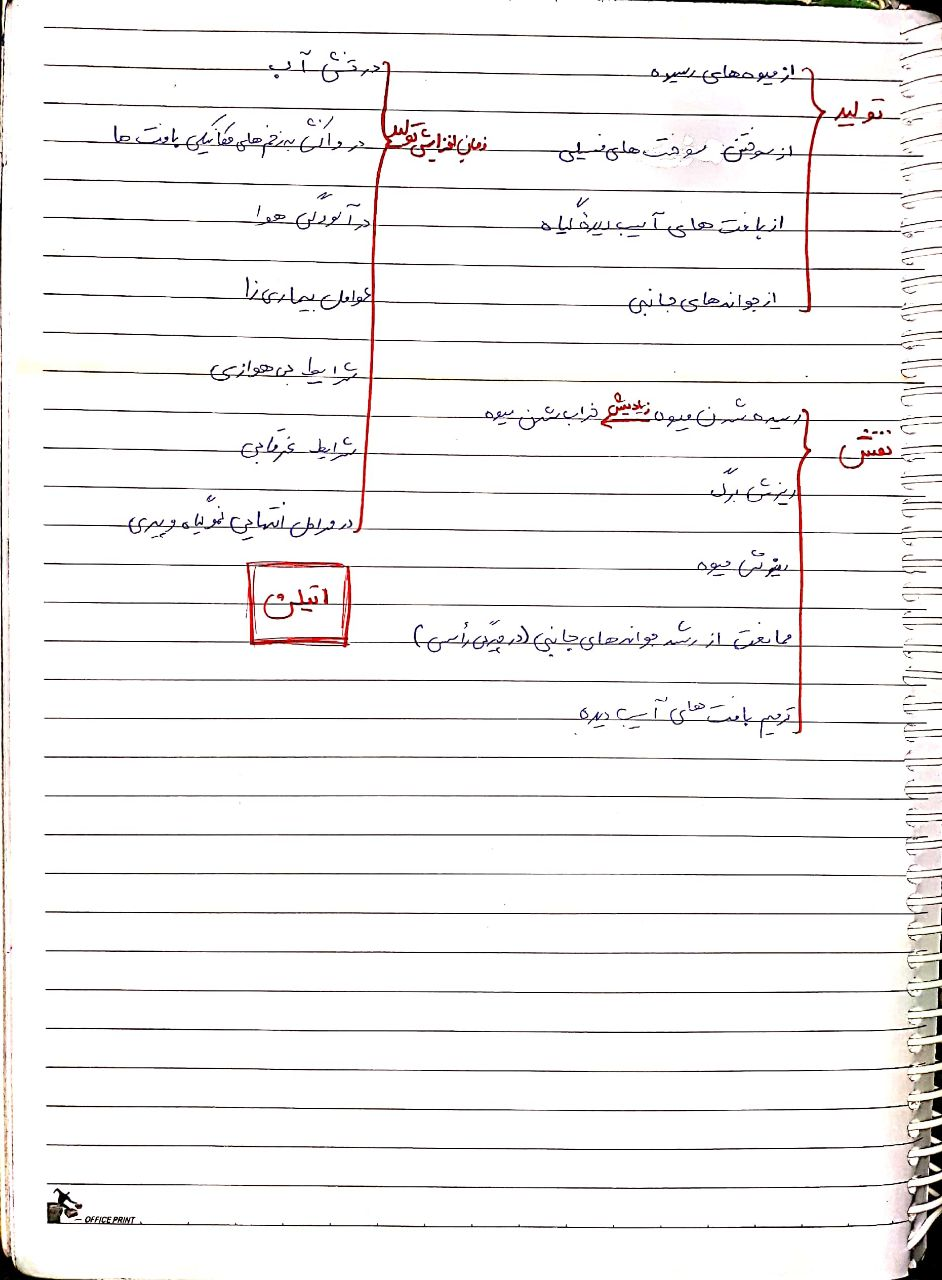 تولید
از میوه‌های رسیده
از سوختن سوخت‌های فسیلی
از بافت‌های آسیب دیدهٔ گیاه
از جوانه‌های جانبی
نقش
رسیده شدن میوه زیادیش خراب شدن میوه
ریزش برگ
ریزش میوه
ممانعت از رشد جوانه‌های جانبی (در چیرگی رأسی)
ترمیم بافت‌های آسیب دیده
زمان افزایش تولید
در تنش آب
در واکنش به زخم‌های مکانیکی بافت‌ها
در آلودگی هوا
عوامل بیماری‌زا
شرایط بی‌هوازی
شرایط غرقابی
در مراحل انتهایی نمو گیاه و پیری
اتیلن
OFFICE PRINT